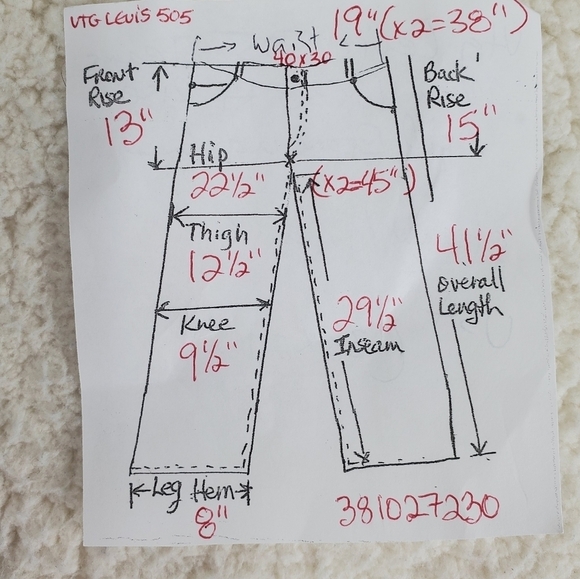 VTG LEVIS 505
19" (x2=38")
Waist
40x30
Front Rise
13"
Back Rise
15"
Hip
22½"
(x2=45")
Thigh
12½"
41½"
Overall Length
Knee
9½"
29½"
Inseam
Leg Hem
8"
381027230